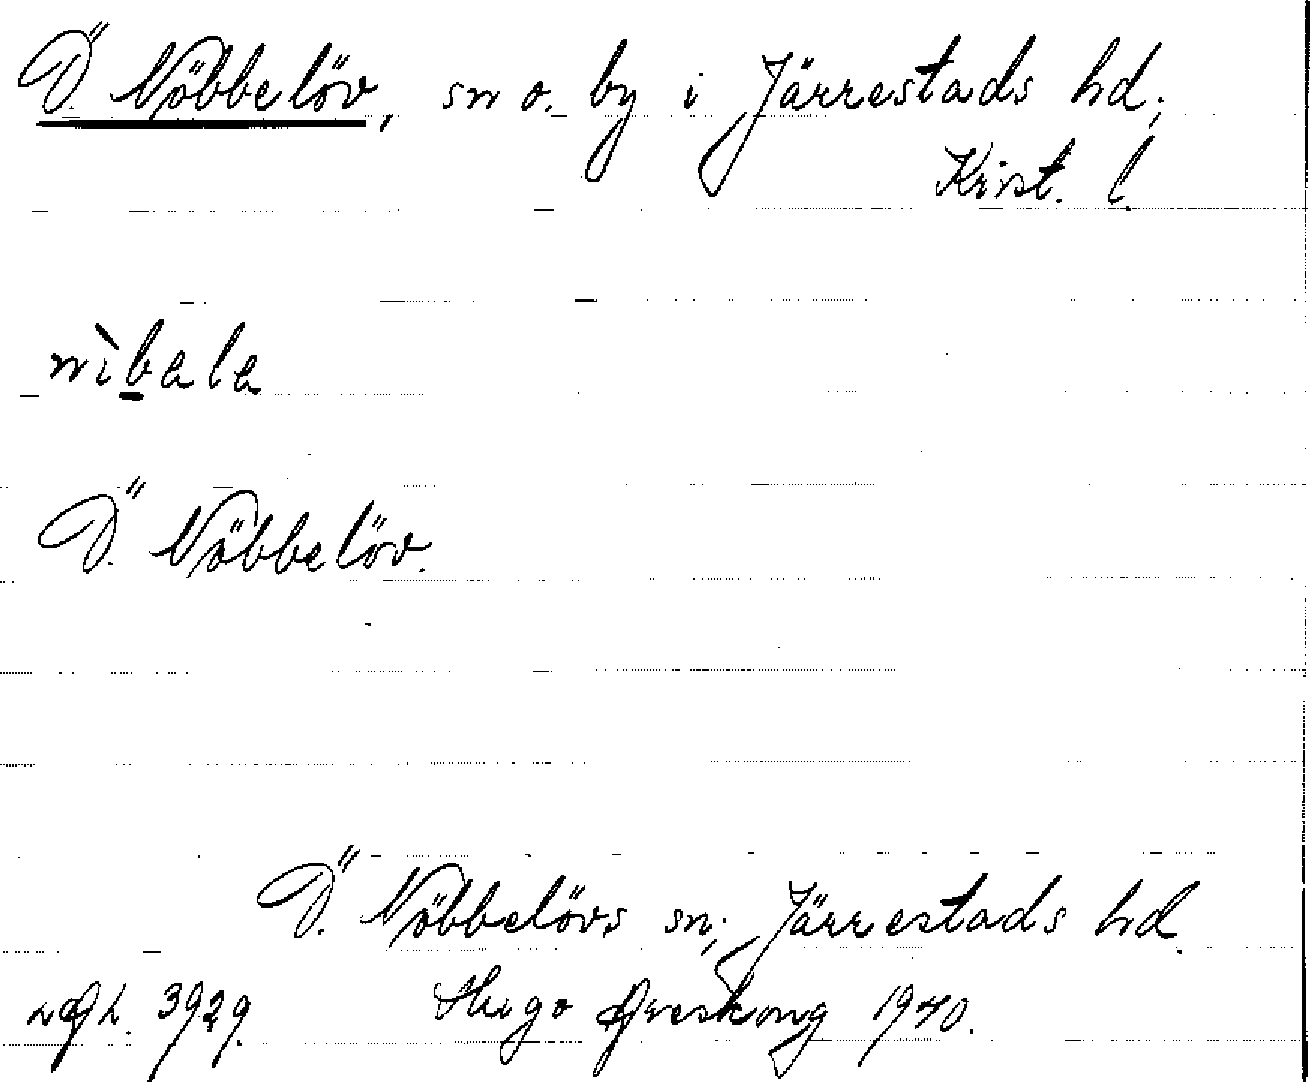 Ö. Nöbbelöv, sn o. by i Järrestads hd;
Krist. l.
nìbala
Ö. Nöbbelöv.
Ö. Nöbbelövs sn; Järrestads hd.
3929. Hugo Areskoug 1940.